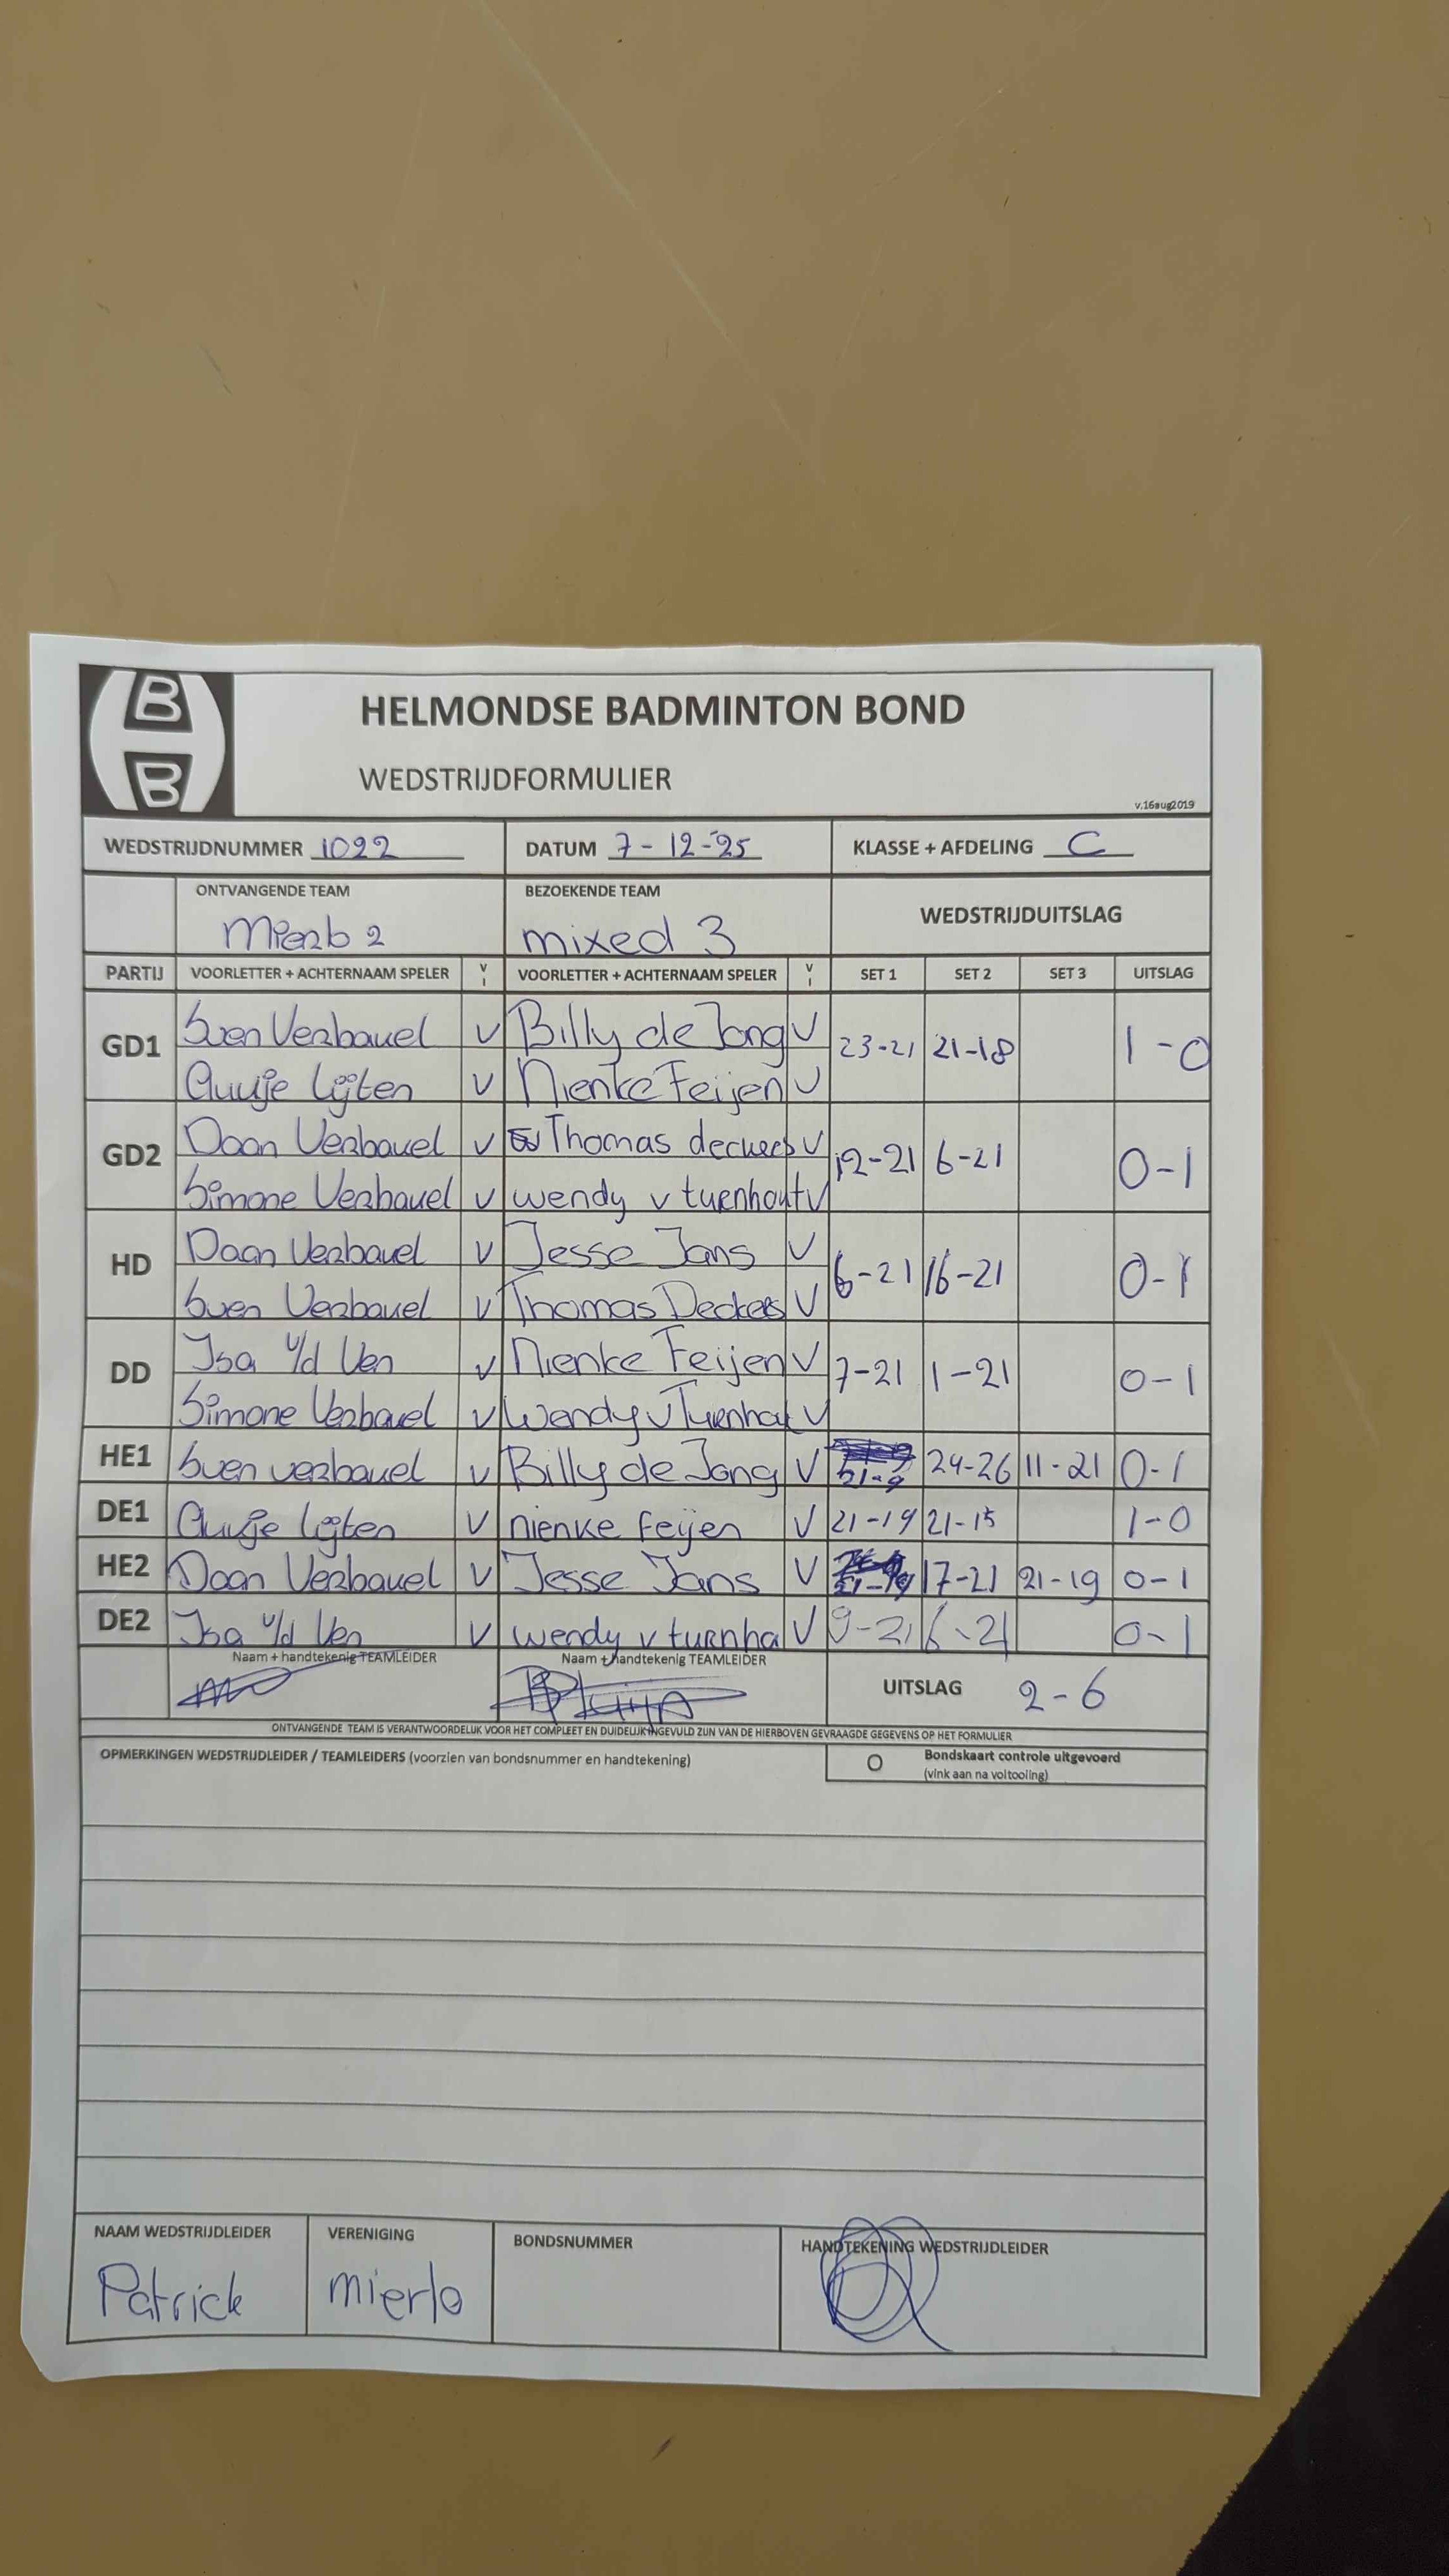 B
B
HELMONDSE BADMINTON BOND
WEDSTRIJDFORMULIER
v.16aug2019
WEDSTRIJDNUMMER 1022 DATUM 7-12-25 KLASSE + AFDELING C
ONTVANGENDE TEAM BEZOEKENDE TEAM WEDSTRIJDUITSLAG
Mierb 2 mixed 3
PARTIJ VOORLETTER + ACHTERNAAM SPELER V I VOORLETTER + ACHTERNAAM SPELER V I SET 1 SET 2 SET 3 UITSLAG
GD1 Sven Verbauel V Billy de Jong V 23-21 21-18 1-0
Guusje Lijten V Nienke Feijen V
GD2 Daan Verbauel V Thomas deckers V 12-21 6-21 0-1
Simone Verbauel V wendy v turnhout V
HD Daan Verbauel V Jesse Jans V 6-21 16-21 0-1
Sven Verbauel V Thomas Deckers V
DD Isa v/d Ven V Nienke Feijen V 7-21 1-21 0-1
Simone Verbauel V Wendy v Turnhou V
HE1 Sven verbauel V Billy de Jong V 21-9 24-26 11-21 0-1
DE1 Guusje Lijten V nienke feijen V 21-19 21-15 1-0
HE2 Daan Verbauel V Jesse Jans V 17-21 21-19 0-1
DE2 Isa v/d Ven V wendy v turnha V 9-21 6-21 0-1
Naam + handtekenig TEAMLEIDER Naam + handtekenig TEAMLEIDER
UITSLAG 2-6
ONTVANGENDE TEAM IS VERANTWOORDELIJK VOOR HET COMPLEET EN DUIDELIJK INGEVULD ZIJN VAN DE HIERBOVEN GEVRAAGDE GEGEVENS OP HET FORMULIER
OPMERKINGEN WEDSTRIJDLEIDER / TEAMLEIDERS (voorzien van bondsnummer en handtekening) O Bondskaart controle uitgevoerd
(vink aan na voltooiing)
NAAM WEDSTRIJDLEIDER VERENIGING BONDSNUMMER HANDTEKENING WEDSTRIJDLEIDER
Patrick mierlo